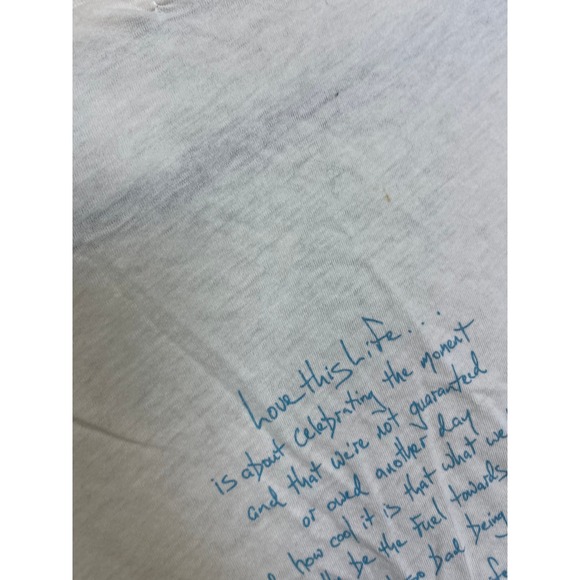 Love this Life....
is about celebrating the moment
and that we're not guaranteed
or owed another day
how cool it is that what we
be the Fuel towards
too bad being